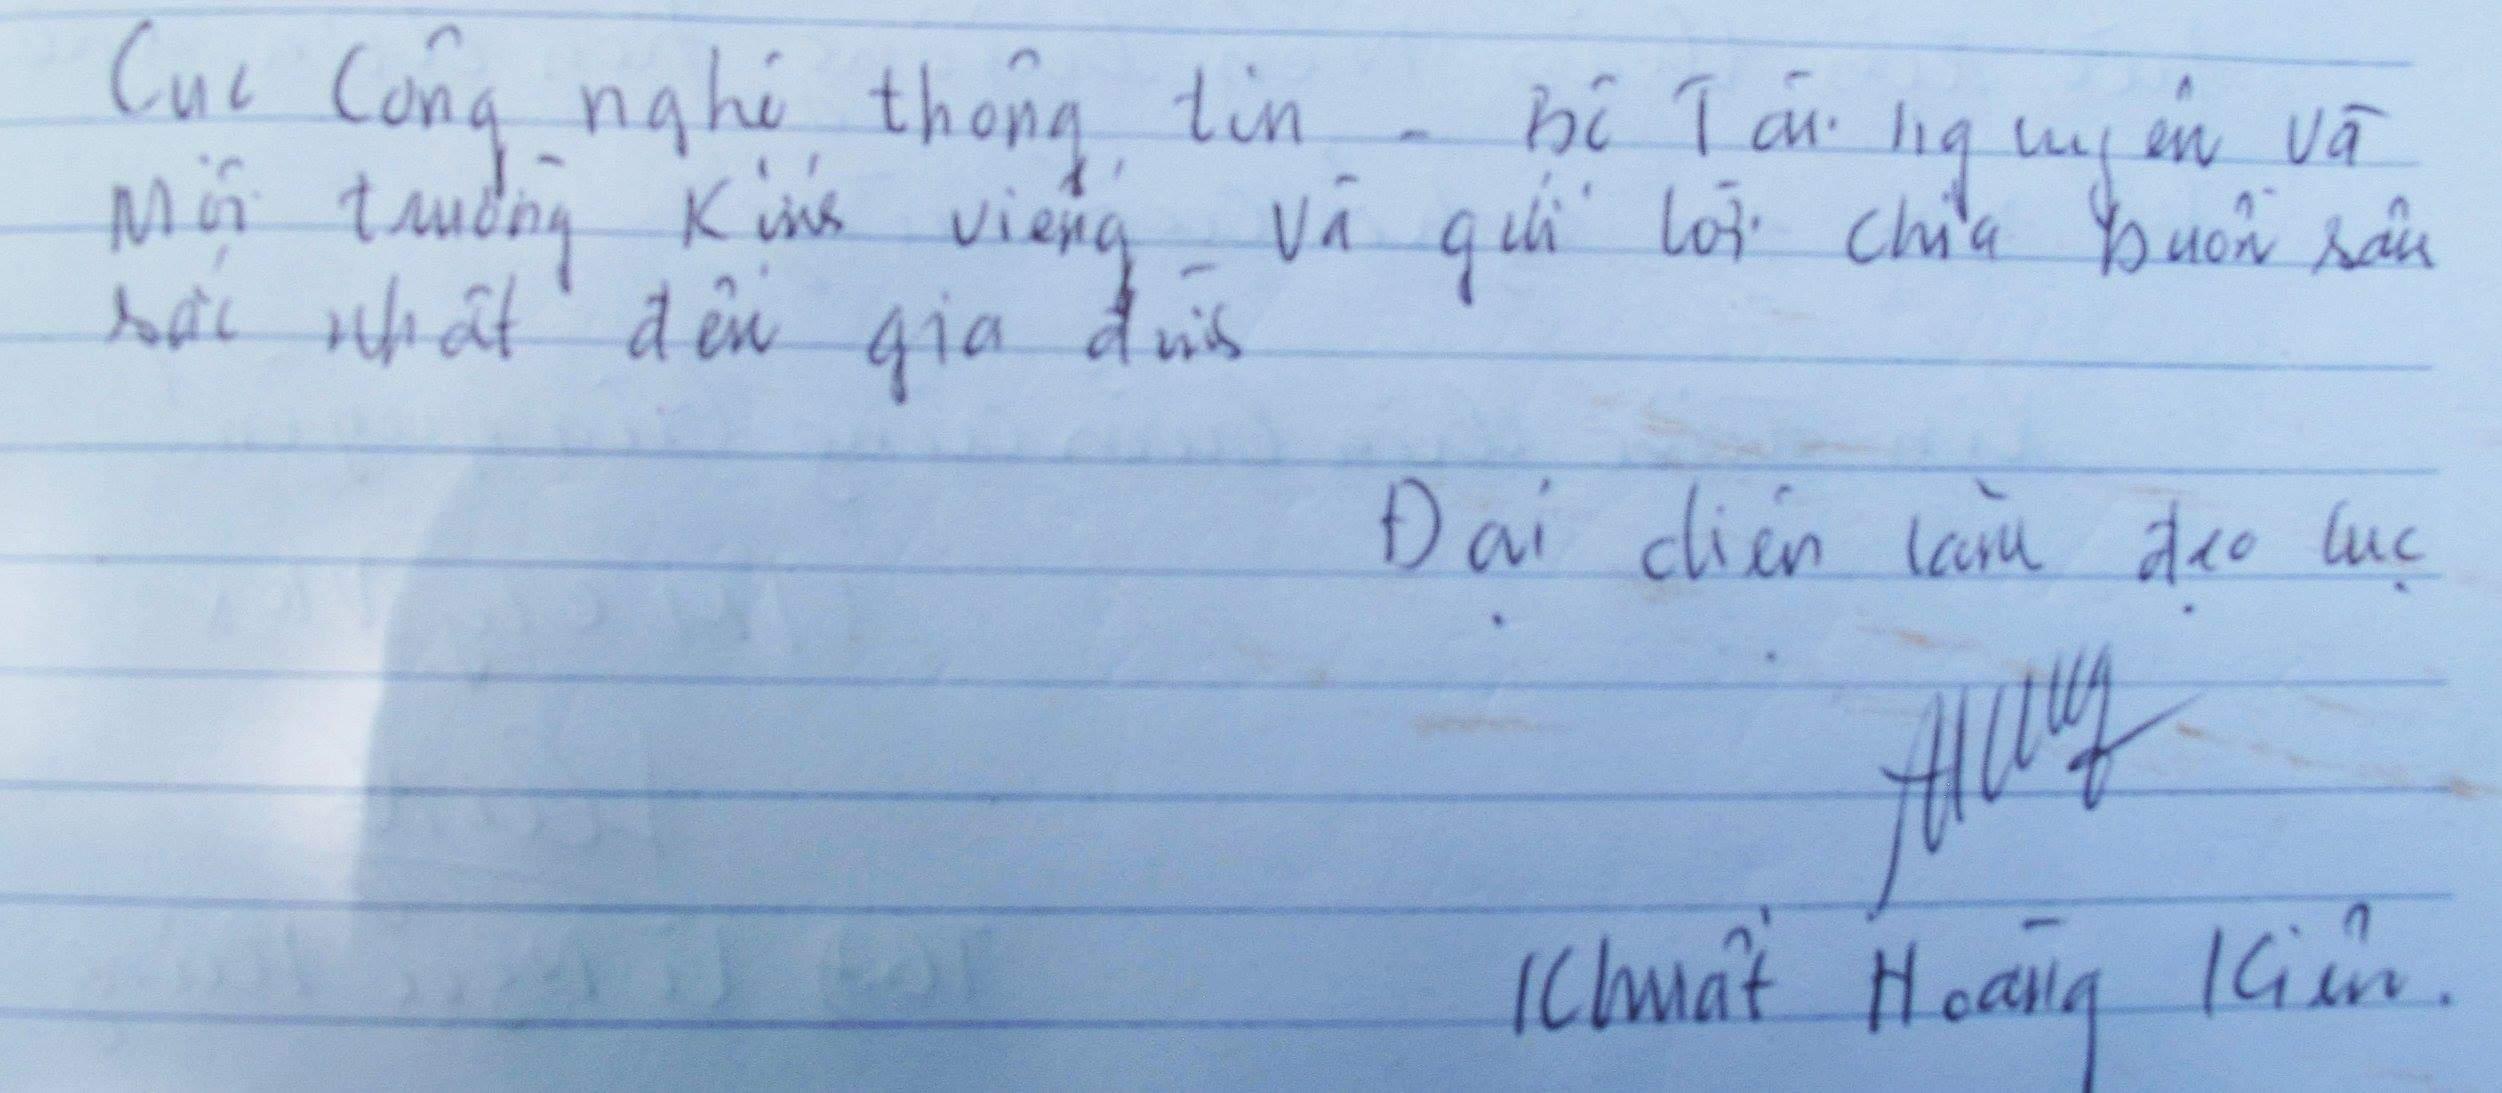 Cục Công nghệ thông tin - Bộ Tài nguyên và
Môi trường Kính viếng và gửi lời chia buồn sâu
sắc nhất đến gia đình
Đại diện lãnh đạo Cục
Khuất Hoàng Kiên.